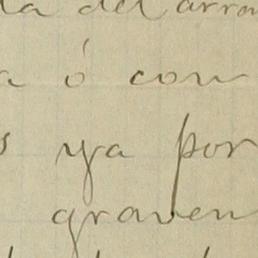 da del arra
a ó con
s ya por
graven